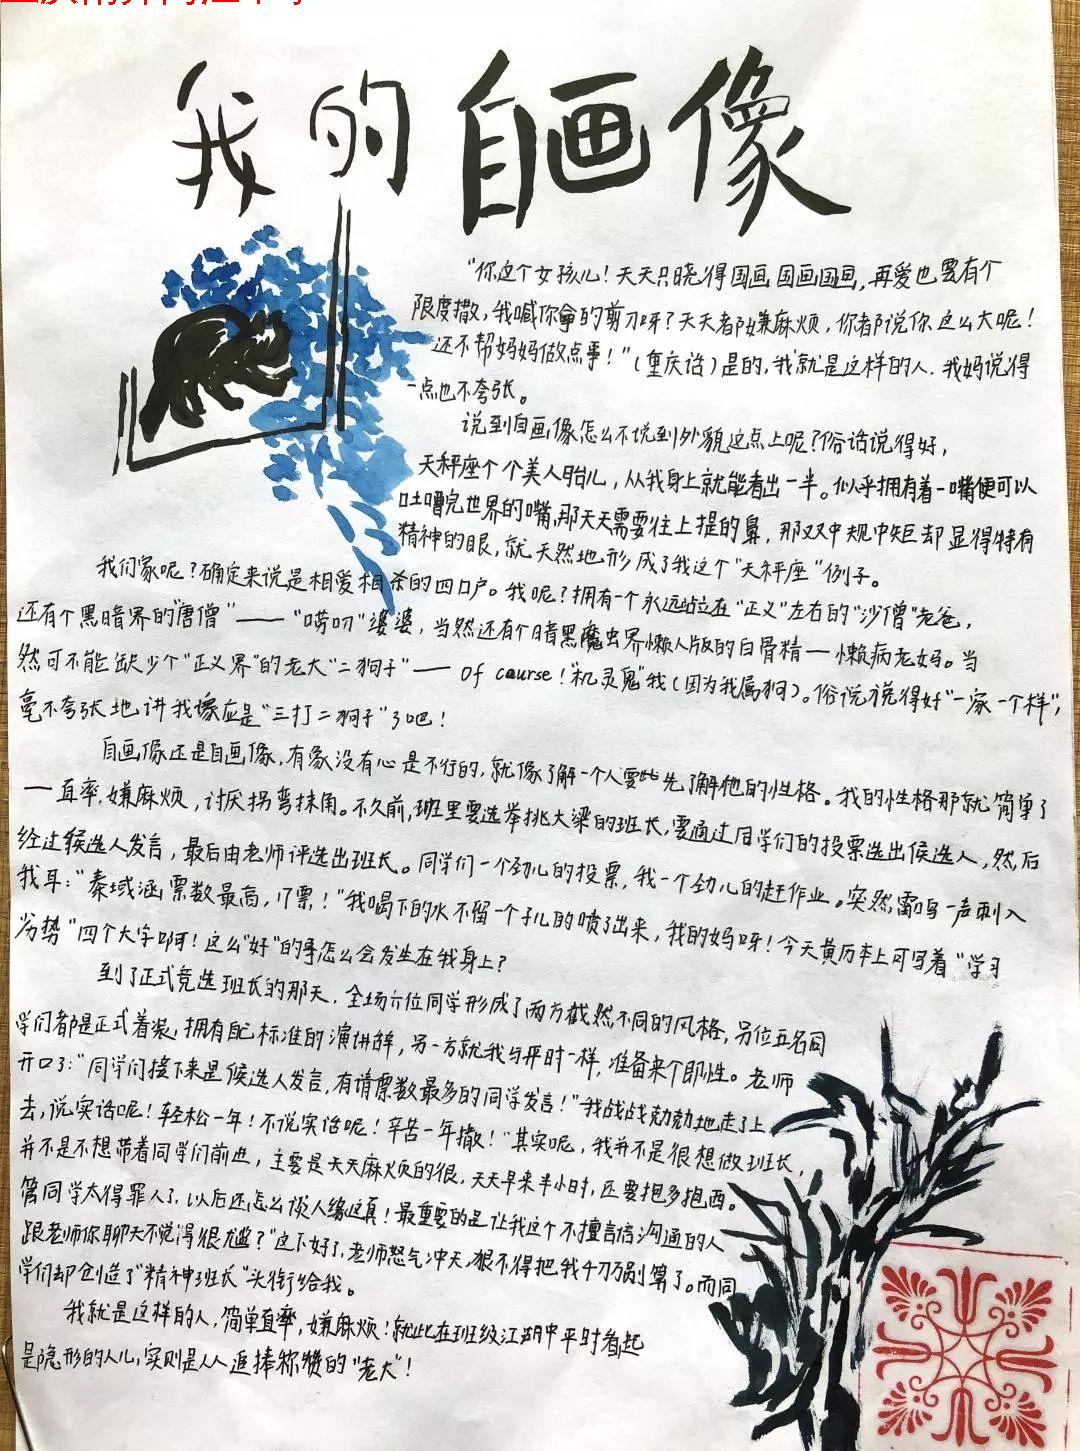 我的自画像
“你这个女孩儿！天天只晓得国画国画国画，再爱也要有个
限度撒，我喊你拿的剪刀呀？天天都嫌麻烦，你都说你这么大呢！
还不帮妈妈做点事！”（重庆话）是的，我就是这样的人．我妈说得
一点也不夸张。
说到自画像怎么不说到外貌这点上呢？俗话说得好，
天秤座个个美人胎儿，从我身上就能看出一半。似乎拥有着一嘴便可以
吐嘈完世界的嘴，那天天需要往上提的鼻，那双中规中矩却显得特有
精神的眼，就天然地形成了我这个“天秤座”例子。
我们家呢？确定来说是相爱相杀的四口户。我呢？拥有一个永远站在“正义”左右的“沙僧”老爸，
还有个黑暗界的“唐僧”——“唠叨”婆婆，当然还有个暗黑魔虫界懒人版的白骨精—懒病老妈。当
然可不能缺少个“正义界”的老大“二狗子”—of caurse！“机灵鬼”我（因为我属狗）。俗说说得好“一家一个样”，
毫不夸张地讲我家应是“三打二狗子”了吧！
自画像还是自画像，有象没有心是不行的，就像了解一个人要先了解他的性格。我的性格那就简单了
一直率，嫌麻烦，讨厌拐弯抹角。不久前，班里要选举挑大梁的班长，要通过同学们的投票选出候选人，然后
经过候选人发言，最后由老师评选出班长。同学们一个劲儿的投票，我一个劲儿的赶作业。突然，雷鸣一声刺入
我耳：“秦域涵票数最高，17票！”我喝下的水不留一个子儿的喷了出来，我的妈呀！今天黄历本上可写着“学习
劣势”四个大字啊！这么“好”的事怎么会发生在我身上？
到了正式竞选班长的那天，全场六位同学形成了两方截然不同的风格，另位五名同
学们都是正式着装，拥有配标准的演讲辞，另一方就我与平时一样，准备来个即性。老师
开口了：“同学们接下来是候选人发言，有请票数最多的同学发言！”我战战兢兢地走了上
去，说实话呢！轻松一年！不说实话呢！辛苦一年撒！“其实呢，我并不是很想做班长，
并不是不想带着同学们前进，主要是天天麻烦的很，天天早来半小时，还要抱多抱西。
管同学太得罪人了，以后还怎么谈人缘这真！最重要的是让我这个不擅言信沟通的人
跟老师你聊天不说得很尴尬？”这下好了，老师怒气冲天，狠不得把我千刀万剐算了。而同
学们却创造了“精神班长”头衔给我。
我就是这样的人，简单直率，嫌麻烦！就此在班级江湖中平时看起
是隐形的人儿，实则是人人追捧称赞的“老大”！